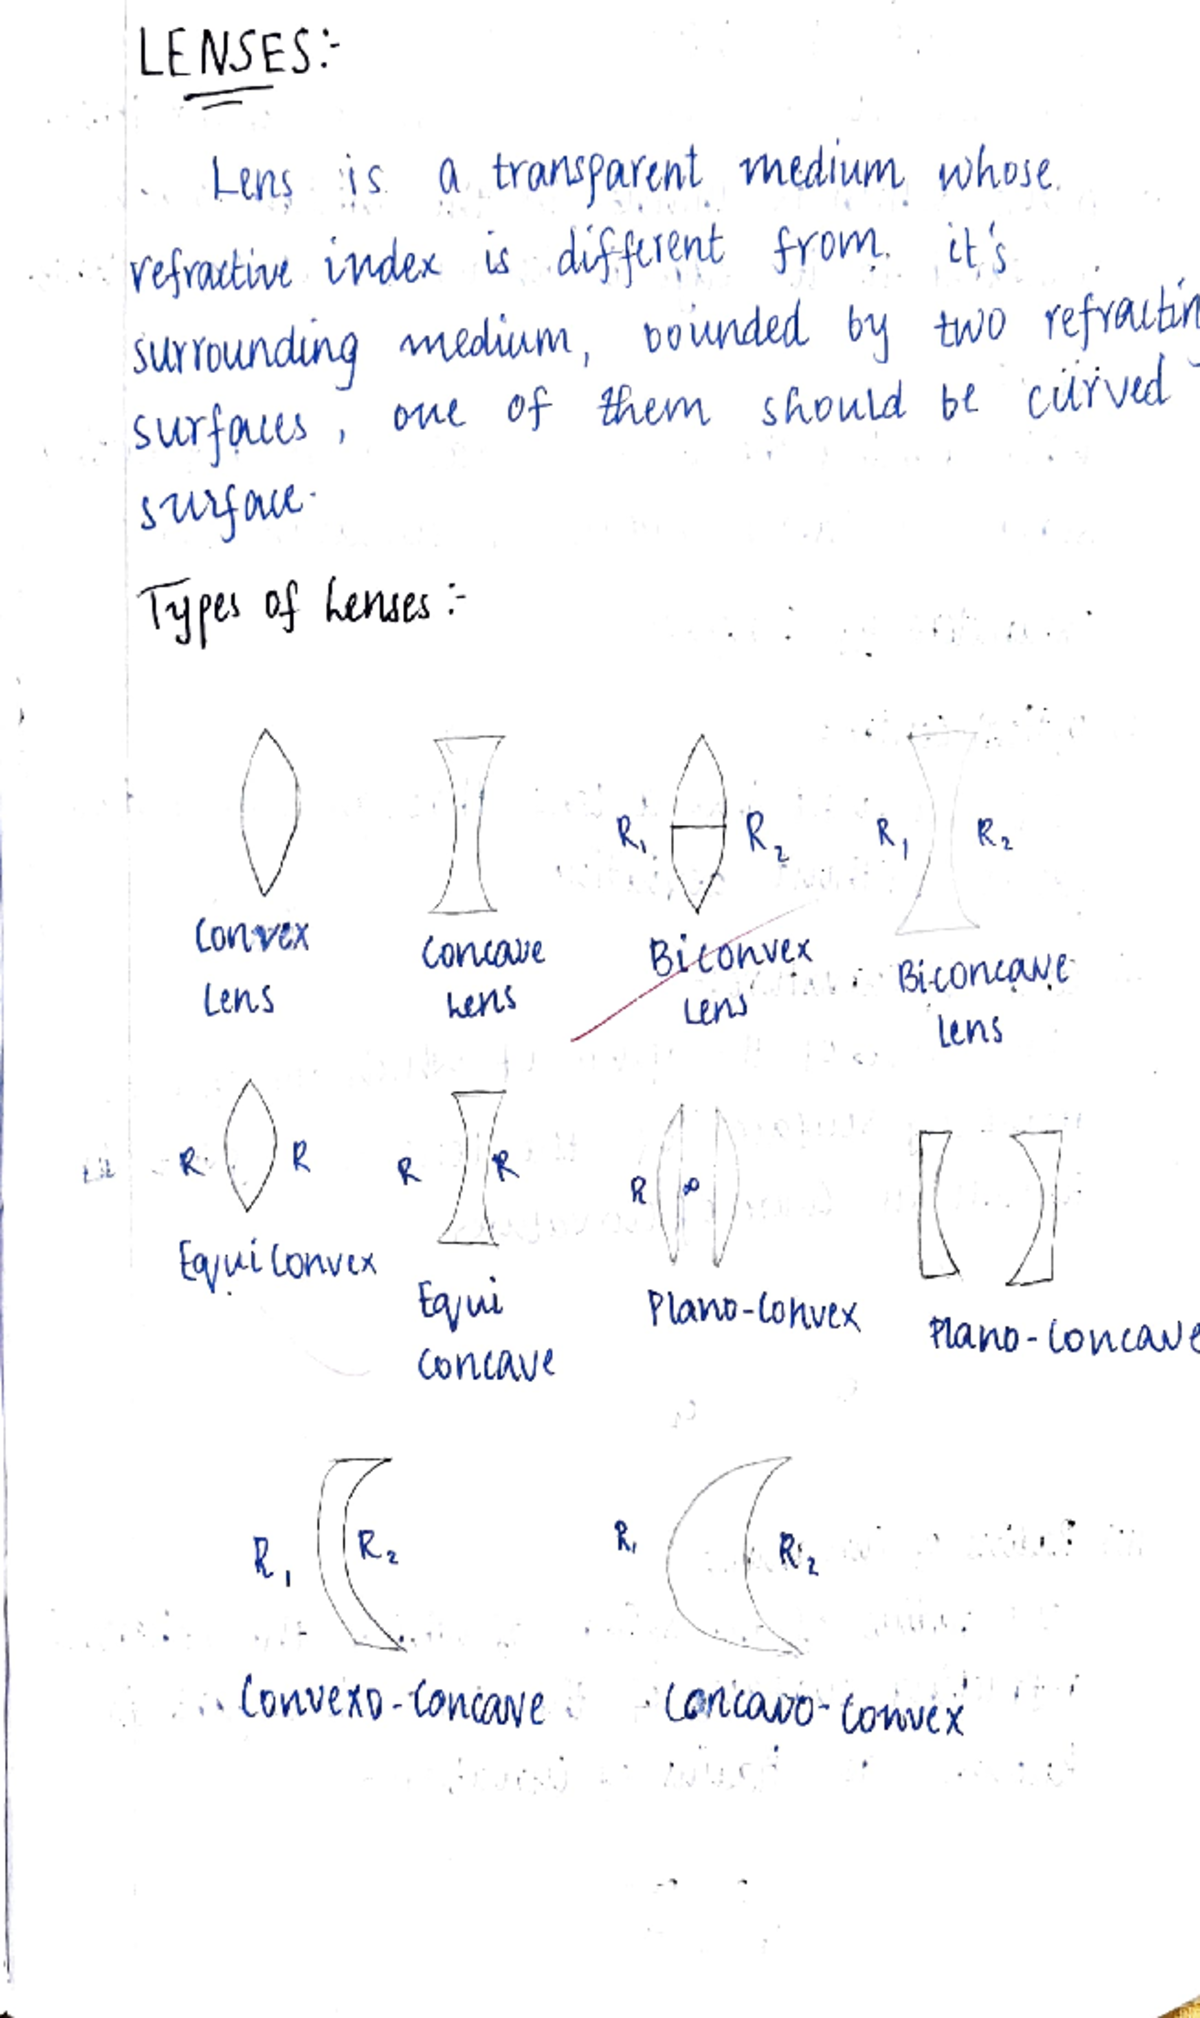 LENSES:-
Lens is a transparent medium whose
refractive index is different from it's
surrounding medium, bounded by two refractin
surfaces, one of them should be curved
surface.
Types of Lenses:-
R1 R2 R1 R2
Convex Concave Biconvex Biconcave
Lens Lens Lens Lens
R R R R R ∞
Equiconvex Equi Plano-Convex Plano-Concave
Concave
R1 R2 R1 R2
Convexo-Concave Concavo-Convex